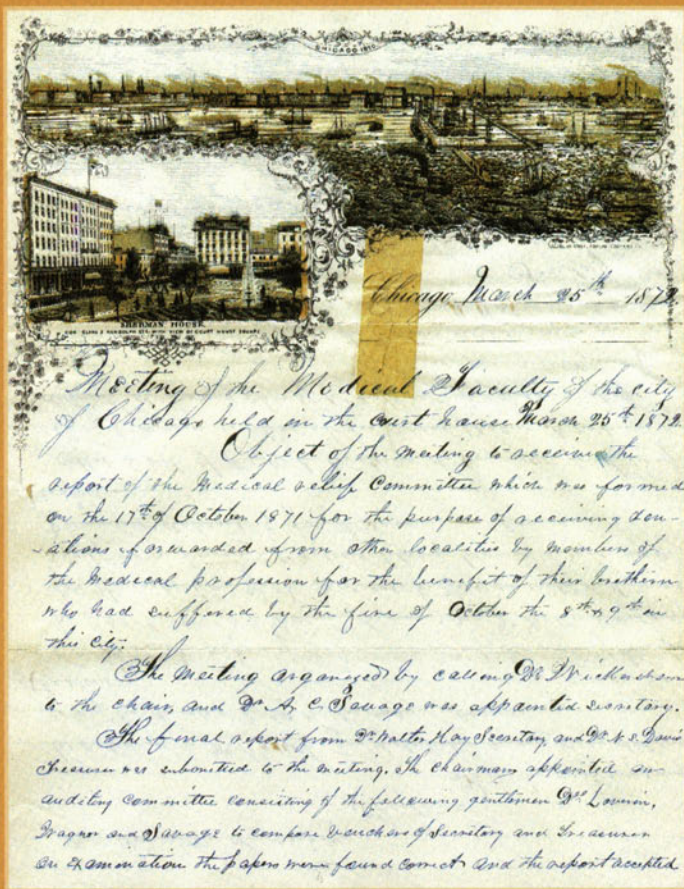 CHICAGO 1870
SHERMAN HOUSE.
COR. CLARK & RANDOLPH STS. WITH VIEW OF COURT HOUSE SQUARE
Chicago March 25th 1872
Meeting of the Medical Faculty of the city
of Chicago held in the court house March 25th 1872.
Object of the meeting to receive the
report of the medical relief Committee which was formed
on the 17th of October 1871 for the purpose of receiving don-
-ations forwarded from other localities by members of
the medical profession for the benefit of their brethern
who had suffered by the fire of October the 8th & 9th in
this city.
The meeting organized by calling Dr
to the chair, and Dr A. C. Savage was appointed secretary.
The final report from Dr Walter Hay Secretary and Dr N. S. Davis
Treasurer was submitted to the meeting. The chairman appointed an
auditing committee consisting of the following gentlemen Drs
Wagner and Savage to compare vouchers of Secretary and Treasurer
on examination the papers were found correct and the report accepted